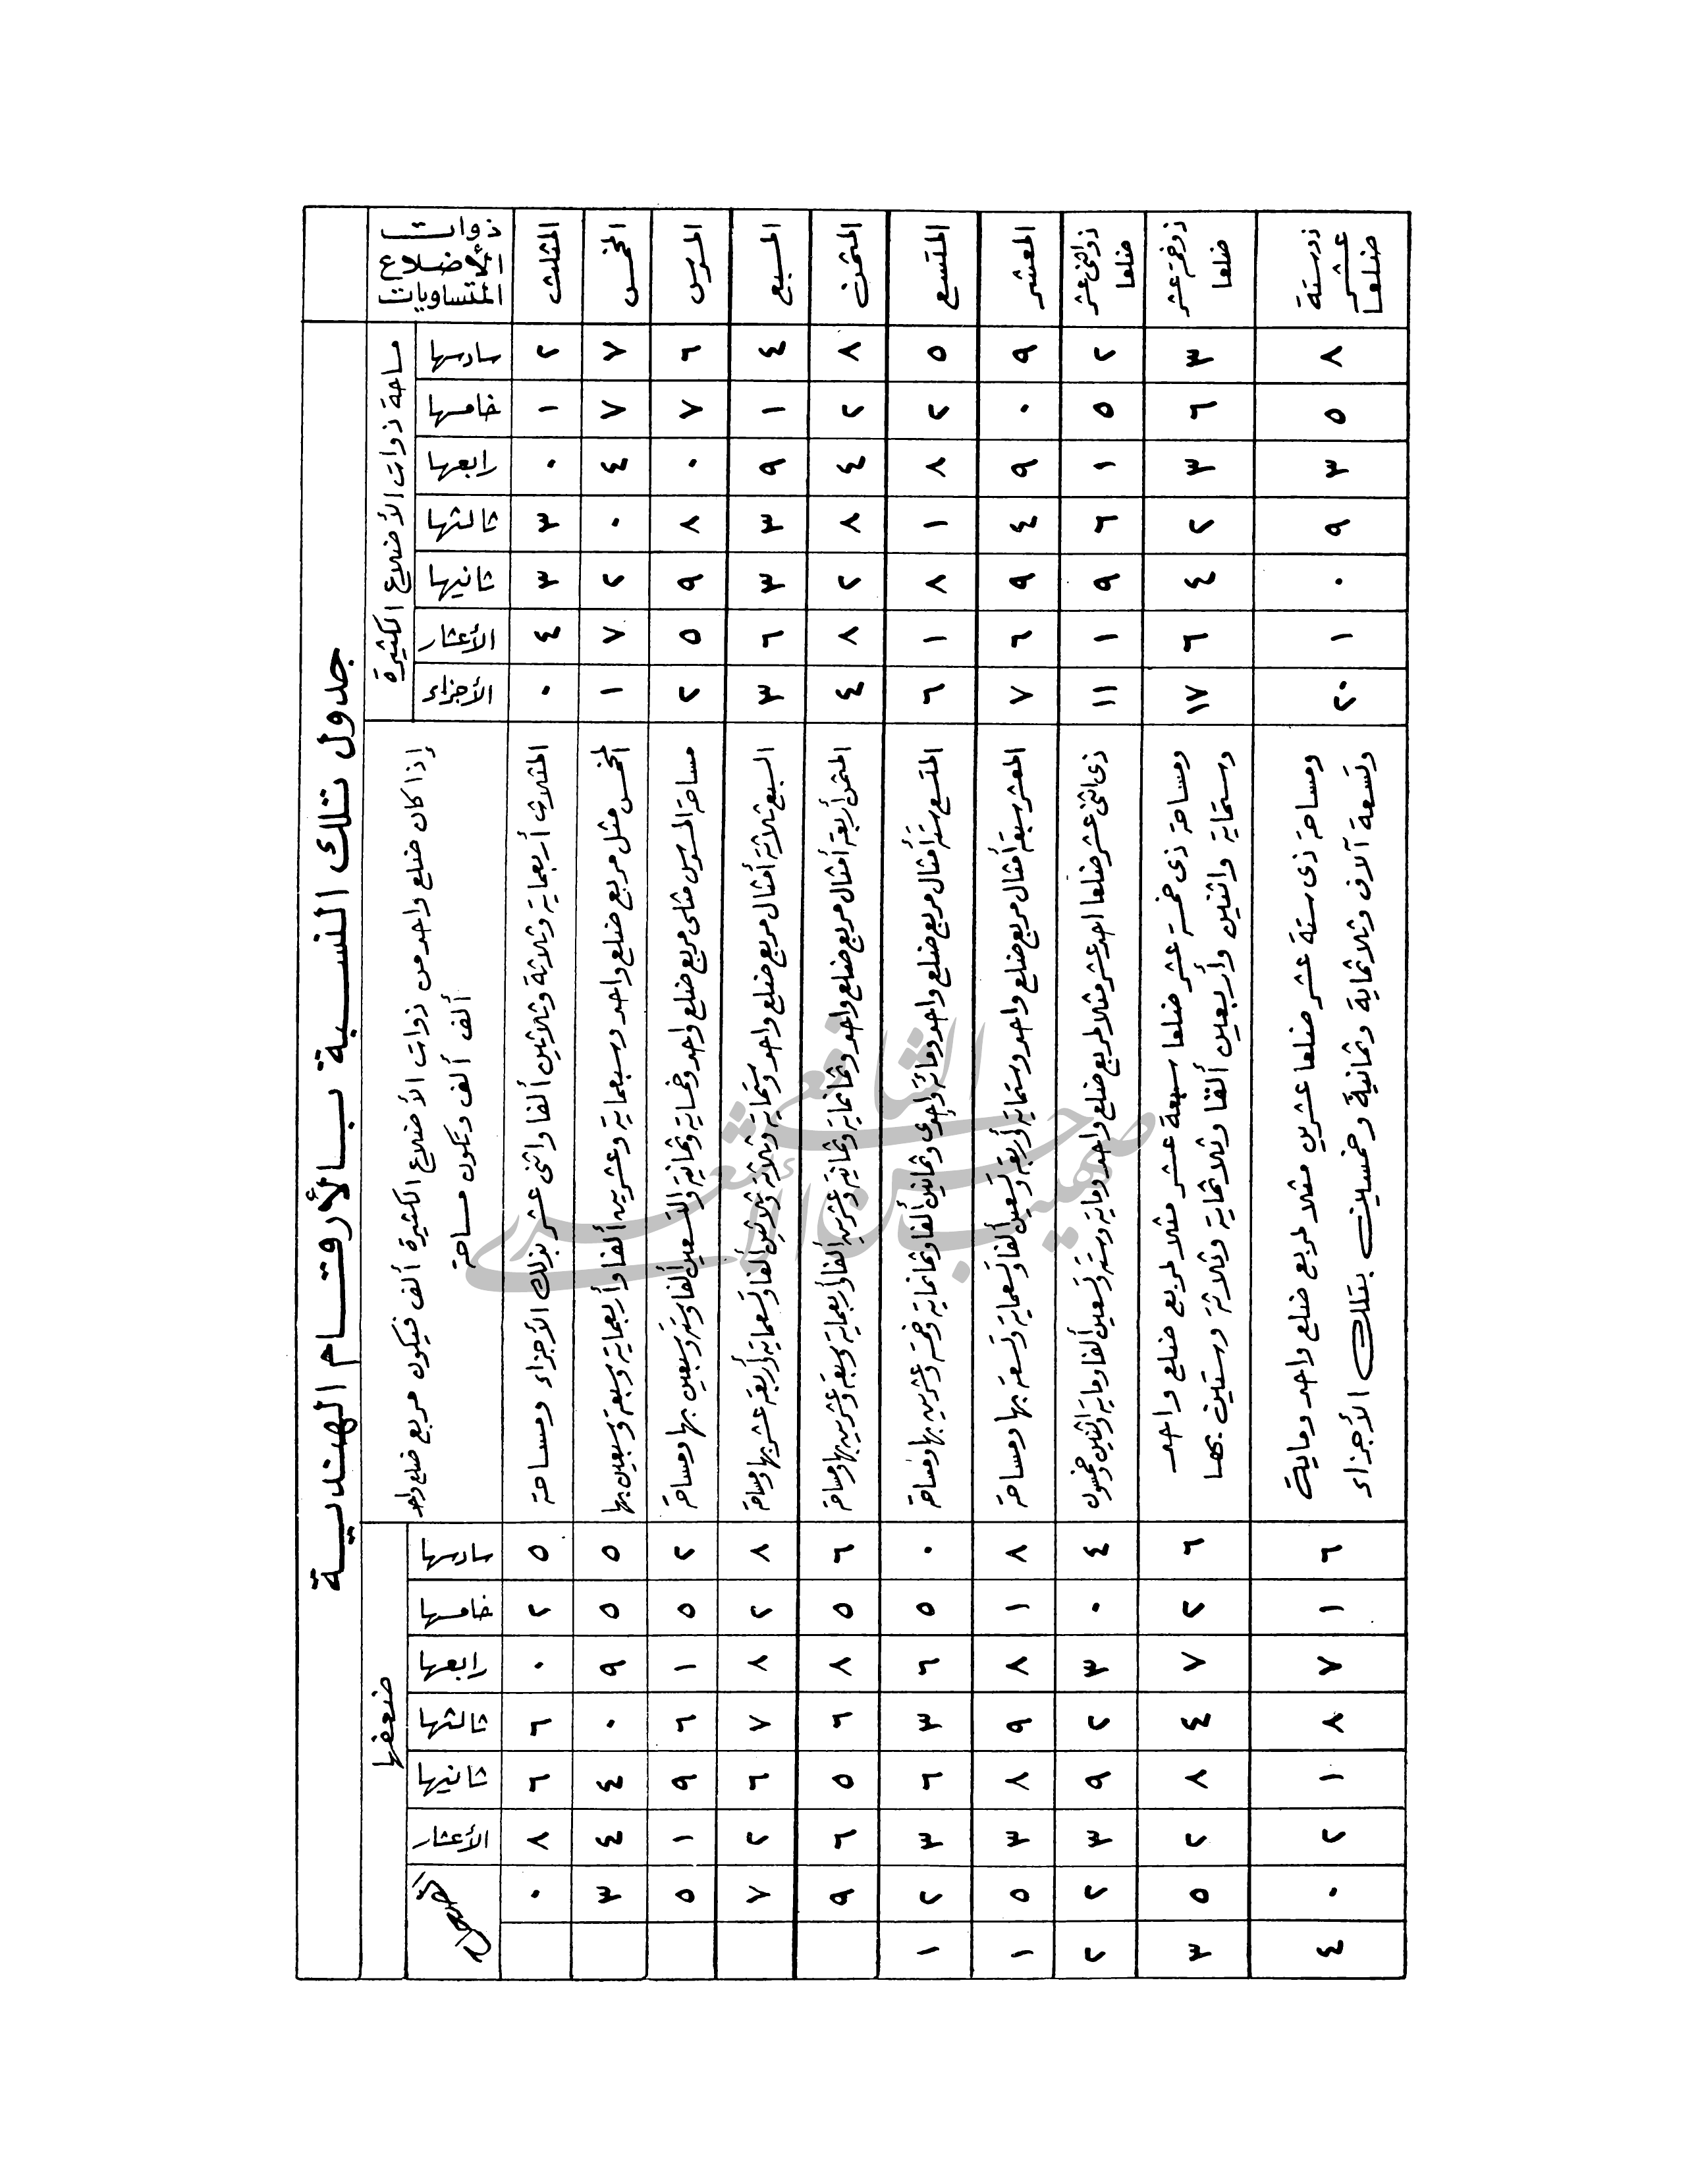 جدول تلك النسبة بالأرقام الهندسية
ذوات الأضلاع المتساويات
مساحة ذوات الأضلاع الكثيرة
إذا كان ضلع واحد من ذوات الأضلاع الكثيرة ألف فيكون مربع ضلع واحد
ألف ألف وتكون مساحة
ضعفها
سادسها خامسها رابعها ثالثها ثانيها الأعشار الأجزاء
سادسها خامسها رابعها ثالثها ثانيها الأعشار
المثلث ٢ ١ ٠ ٣ ٣ ٤ ٠ المثلاث أربعماية وثلاثة وثلاثين ألفا واثنى عشر بذلك الأجزاء ومساحة ٥ ٢ ٠ ٦ ٦ ٨ ٠
المخمس ٧ ٧ ٤ ٠ ٢ ٧ ١ المخمس مثل مربع ضلع واحد وسبعماية وعشرين ألفا وأربعماية وسبعة وسبعين بها ٥ ٥ ٩ ٠ ٤ ٤ ٣
المسدس ٦ ٧ ٠ ٨ ٩ ٥ ٢ مساحة المسدس مثلى مربع ضلع واحد وخمساية وثمانية والتسعين ألفا وستة وسبعين بها ومساحة ٢ ٥ ١ ٦ ٩ ١ ٥
المسبع ٤ ١ ٩ ٣ ٣ ٦ ٣ السبع ثلاثة أمثال مربع ضلع واحد وستماية وثلاثة وثلاثين ألفا وتسعماية وأربعة عشر بها ومساحة ٨ ٢ ٨ ٧ ٦ ٢ ٧
المثمن ٨ ٢ ٤ ٨ ٢ ٨ ٤ المثمن أربعة أمثال مربع ضلع واحد وثمانماية وثمانية وعشرين ألفا وأربعماية وسبعة وعشرين بها ومساحة ٦ ٥ ٨ ٦ ٥ ٦ ٩
المتسع ٥ ٢ ٨ ١ ٨ ١ ٦ المتسع ستة أمثال مربع ضلع واحد ومائة وإحدى وثمانين ألفا وثمانماية وخمسة وعشرين بها ومساحة ٠ ٥ ٦ ٣ ٦ ٣ ٢ ١
المعشر ٩ ٠ ٩ ٤ ٩ ٦ ٧ المعشر سبعة أمثال مربع ضلع واحد وستماية وأربعة وتسعين ألفا وتسعماية وتسعة بها ومساحة ٨ ١ ٨ ٩ ٨ ٣ ٥ ١
ذو اثنى عشر ضلعا ٢ ٥ ١ ٦ ٩ ١ ١١ ذى اثنى عشر ضلعا احد عشر مثلا لمربع ضلع واحد وماية وستة وتسعين ألفا وماية واثنين وخمسون ٤ ٠ ٣ ٢ ٩ ٣ ٢ ٢
ذو خمسة عشر ضلعا ٣ ٦ ٣ ٢ ٤ ٦ ١٧ ومساحة ذى خمسة عشر ضلعا سبعة عشر مثلا لمربع ضلع واحد
وستماية واثنين وأربعين ألفا وثلاثماية وثلاثة وستين بها ٦ ٢ ٧ ٤ ٨ ٢ ٥ ٣
ذو ستة عشر ضلعا ٨ ٥ ٣ ٩ ٠ ١ ٢٠ ومساحة ذى ستة عشر ضلعا عشرين مثلا لمربع ضلع واحد وماية
وتسعة آلاف وثلاثماية وثمانية وخمسين بتلك الأجزاء ٦ ١ ٧ ٨ ١ ٢ ٠ ٤
صهيب حسن الشافعي الأشعري